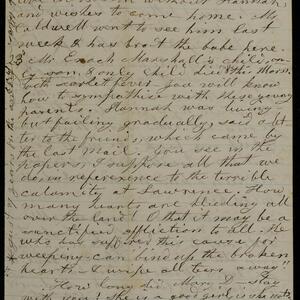 without Hannah,
and wishes to come home. Mr
Caldwell went to see him last
week & has bro't the babe here.
Mr Enoch Marshall's child, on-
ly son, & only child died this Morn.
with scarlet fever you will know
how to sympathise with the
parents. Hannah was living
but failing gradually, said a let-
ter to the friends, which came by
the last mail. You see in the
papers I suppose all that we
do, in reference to the terrible
calamity at Lawrence. How
many hearts are bleeding all
over the land! O that it may be a
sanctified affliction to all. He
who has suffered this cause for
weeping, can bind up the broken
heart & wipe all tears away"
How long did Mary stay
with you? She is a good girl is she not